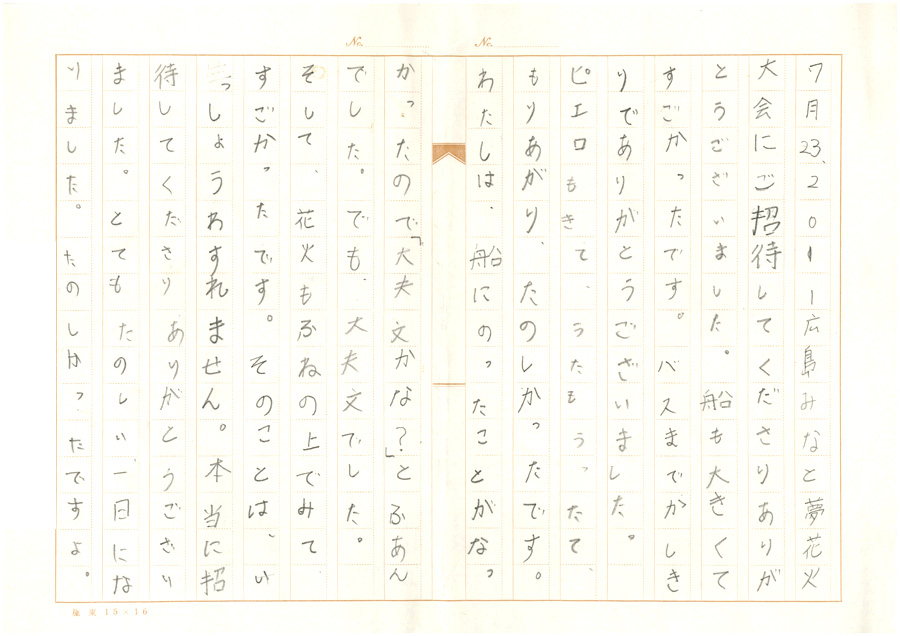 No.
No.
7月23、2011広島みなと夢花火
大会にご招待してくださりありが
とうございました。船も大きくて
すごかったです。バスまでかしき
りでありがとうございました。
ピエロもきて、うたもうたって、
もりあがり、たのしかったです。
わたしは、船にのったことがなっ
かったので「大夫文かな?」とふあん
でした。でも、大夫文でした。
そして、花火もふねの上でみて
すごかったです。そのことは、い
っしょうわすれません。本当に招
待してくださりありがとうござい
ました。とてもたのしい一日にな
りました。たのしかったですよ。
極東 15×16